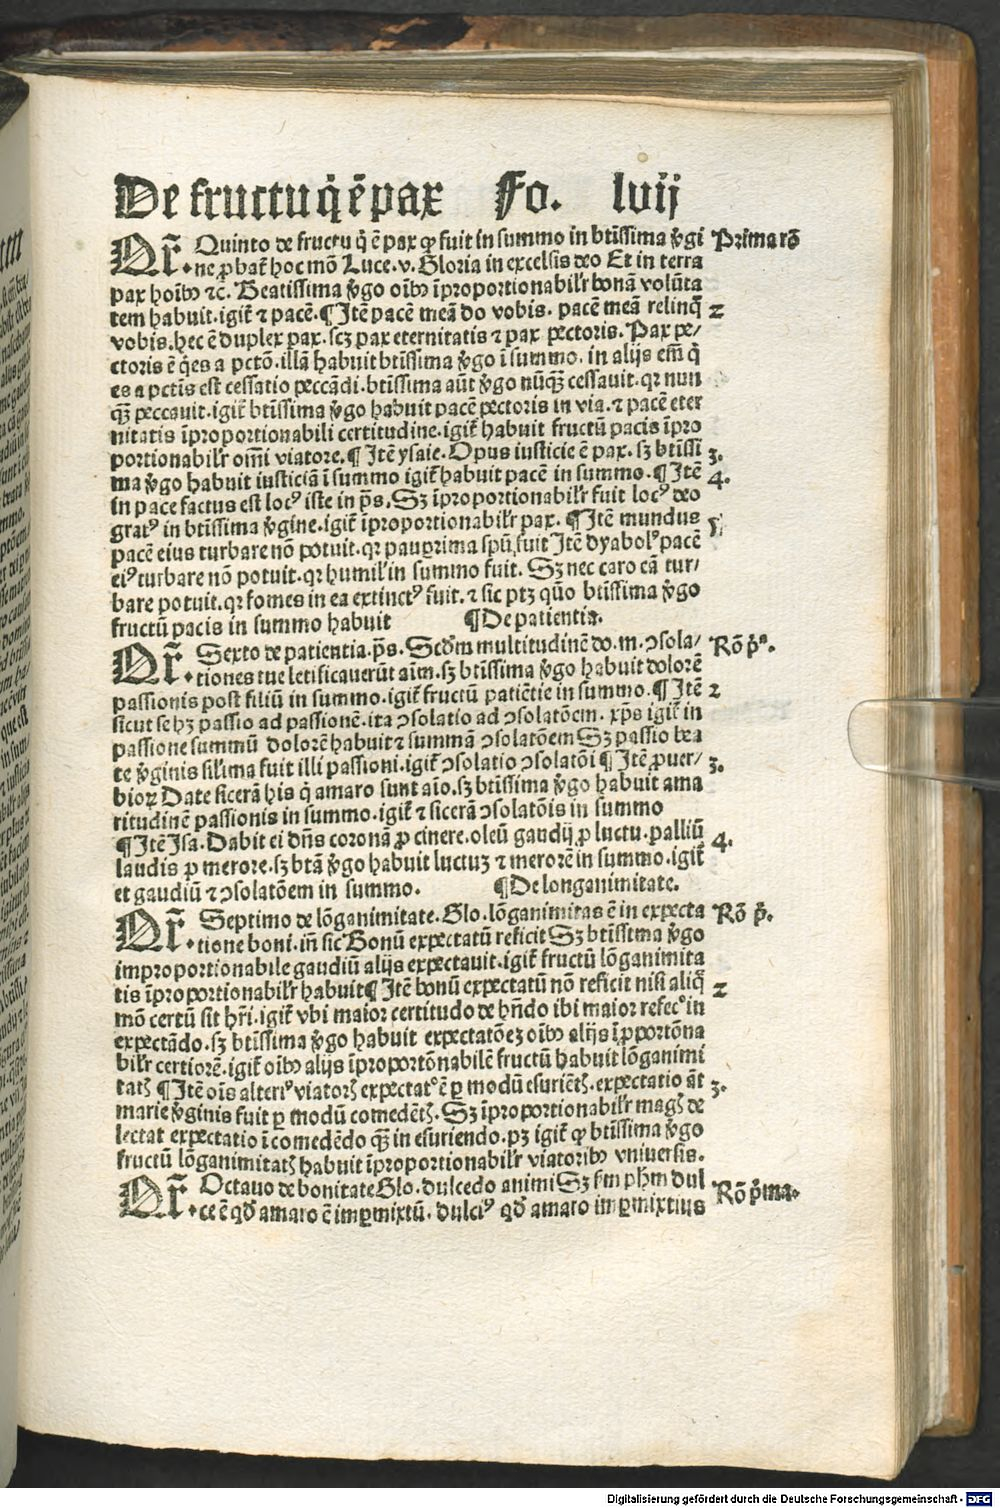 De fructu q̇ ē pax Fo. lvij
Qr̄. Quinto de fructu q̇ ē pax ꝙ fuit in summo in btissima v̓gi Prima rō
ne ꝓbat̄ hoc mō Luce.v. Gloria in excelsis deo Et in terra
pax hoīb⁹ ⁊c̄. Beatissima v̓go oīb⁹ īproportionabilr̄ bonā volūta
tem habuit.igit̄ ⁊ pacē.¶Itē pacē meā do vobis. pacē meā relinq̄ 2
vobis.hec ē duplex pax.scꝫ pax eternitatis ⁊ pax pectoris. Pax pe/
ctoris ē q̇es a pctō.illā habuit btīssima v̓go ī summo. in alijs em̄ q̇
es a pctīs est cessatio peccādi.btīssima aūt v̓go nūqꝫ cessauit.qꝛ nun
qꝫ peccauit.igit̄ btīssima v̓go habuit pacē pectoris in via.⁊ pacē eter
nitatis īproportionabili certitudine.igit̄ habuit fructū pacis īpro
portionabilr̄ om̄i viatore.¶Itē ysaie. Opus iusticie ē pax. sꝫ btīssi 3.
ma v̓go habuit iusticiā ī summo igit̄ habuit pacē in summo.¶Itē 4.
in pace factus est loc⁹ iste in ps̄. Sꝫ īproportionabilr̄ fuit loc⁹ deo
grat⁹ in btīssima v̓gine.igit̄ īproportionabilr̄ pax. ¶Itē mundus 5
pacē eius turbare nō potuit.qꝛ pauꝑrima spū fuit Itē dyabol⁹ pacē
ei⁹ turbare nō potuit.qꝛ humil' in summo fuit. Sꝫ nec caro eā tur/
bare potuit.qꝛ fomes in ea extinct⁹ fuit.⁊ sic ptꝫ quō btīssima v̓go
fructū pacis in summo habuit ¶De patientia.
Qr̄. Sexto de patientia.ps̄. Scḋm multitudinē do.m.ɔsola/ Rō p̓ᵃ.
tiones tue letificauerūt aīm.sꝫ btīssima v̓go habuit dolorē
passionis post filiū in summo.igit̄ fructū patiētie in summo.¶Itē 2
sicut se hꝫ passio ad passionē.ita ɔsolatio ad ɔsolatōem. xp̄s igit̄ in
passione summū dolorē habuit ⁊ summā ɔsolatōem Sꝫ passio bea
te v̓ginis sil'ima fuit illi passioni.igit̄ ɔsolatio ɔsolatōi ¶Itē ꝓuer/ 3.
bioꝝ Date sicerā his q̇ amaro sunt aīo.sꝫ btīssima v̓go habuit ama
ritudinē passionis in summo.igit̄ ⁊ sicerā ɔsolatōis in summo
¶Itē Isa. Dabit ei dn̄s coronā ꝓ cinere.oleū gaudij ꝓ luctu.palliū 4.
laudis ꝓ merore.sꝫ btā v̓go habuit luctuꝫ ⁊ merorē in summo.igit̄
et gaudiū ⁊ ɔsolatōem in summo. ¶De longanimitate.
Qr̄. Septimo de lōganimitate. Glo.lōganimitas ē in expecta Rō p̓.
tione boni.iñ sic Bonū expectatū reficit Sꝫ btīssima v̓go
improportionabile gaudiū alijs expectauit.igit̄ fructū lōganimita
tis īproportionabilr̄ habuit¶Itē bonū expectatū nō reficit nisi aliq̄ 2
mō certū sit hr̄i.igit̄ vbi maior certitudo de hn̄do ibi maior refec⁰ in
expectādo.sꝫ btīssima v̓go habuit expectatōeꝫ oīb⁹ alijs īꝓportōna
bilr̄ certiorē.igit̄ oīb⁹ alijs īproportōnabilē fructū habuit lōganimi
tatꝭ ¶Itē oīs alteri⁹ viatorꝭ expectat⁰ ē ꝑ modū esuriētꝭ.expectatio āt 3.
marie v̓ginis fuit ꝑ modū comedētꝭ. Sꝫ īproportionabilr̄ magꝭ de
lectat expectatio ī comedēdo qꝫ in esuriendo.pꝫ igit̄ ꝙ btīssima v̓go
fructū lōganimitatꝭ habuit īproportionabilr̄ viatorib⁹ vniuersis.
Qr̄. Octauo de bonitate Glo.dulcedo animi Sꝫ ẜm phm̄ dul Rō p̓ma.
ce ē qḋ amaro ē imꝑmixtū.dulci⁹ qḋ amaro imꝑmixtius
Digitalisierung gefördert durch die Deutsche Forschungsgemeinschaft - DFG